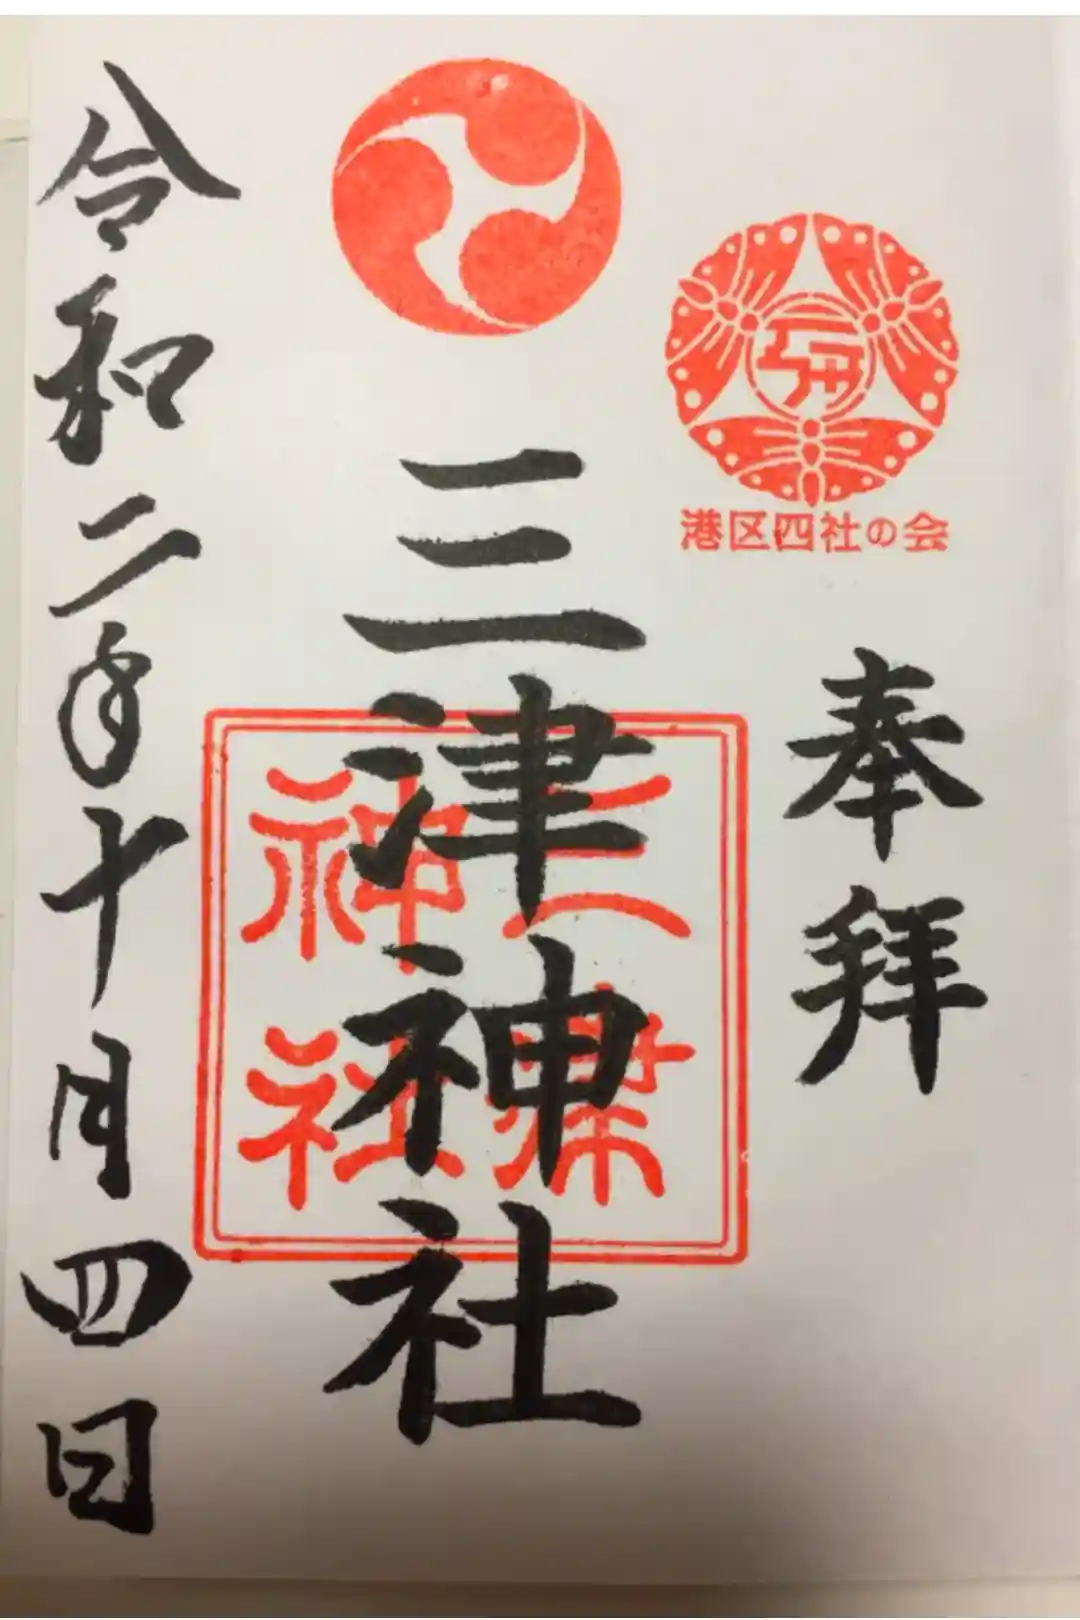 港区四社の会
奉拝
三津神社
令和二年十月四日